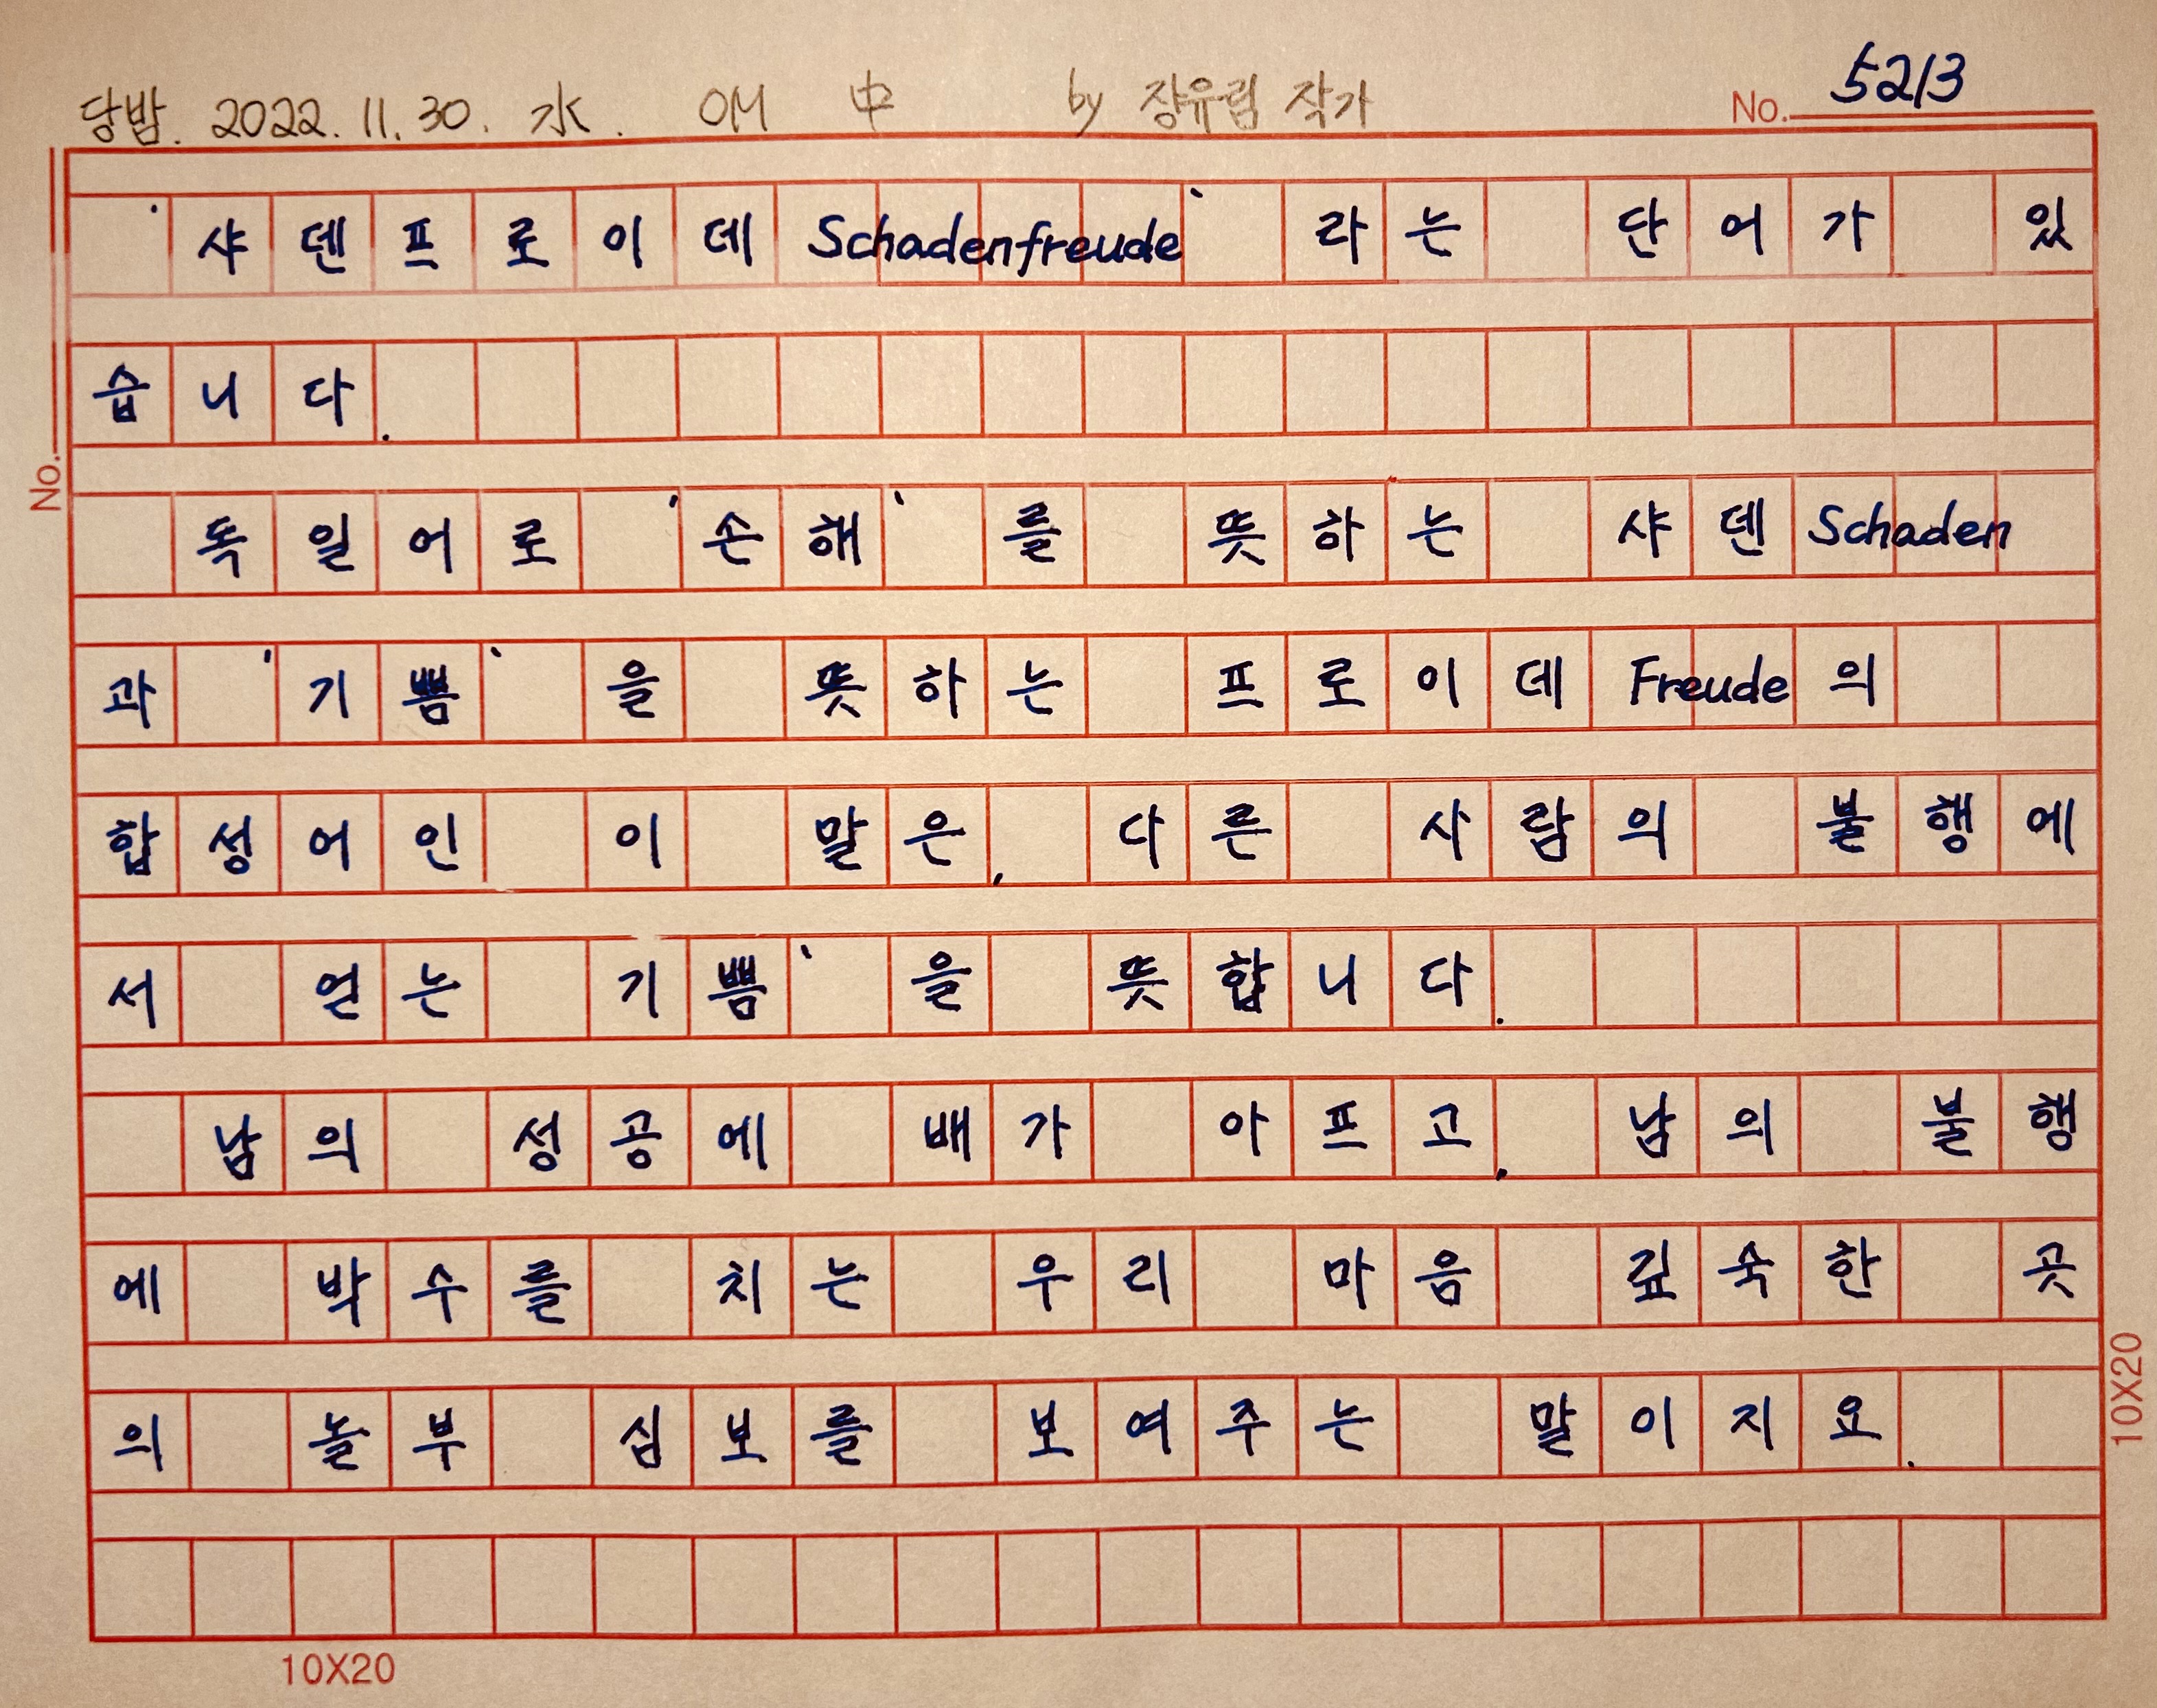 당밤. 2022. 11. 30. 水. OM 中 by 장유림 작가
No. 5213
'샤덴프로이데Schadenfreude'라는 단어가 있
습니다.
독일어로 '손해'를 뜻하는 샤덴Schaden
과 '기쁨'을 뜻하는 프로이데Freude의
합성어인 이 말은, 다른 사람의 불행에
서 얻는 기쁨'을 뜻합니다.
남의 성공에 배가 아프고, 남의 불행
에 박수를 치는 우리 마음 깊숙한 곳
의 놀부 심보를 보여주는 말이지요.
No.
10X20
10X20